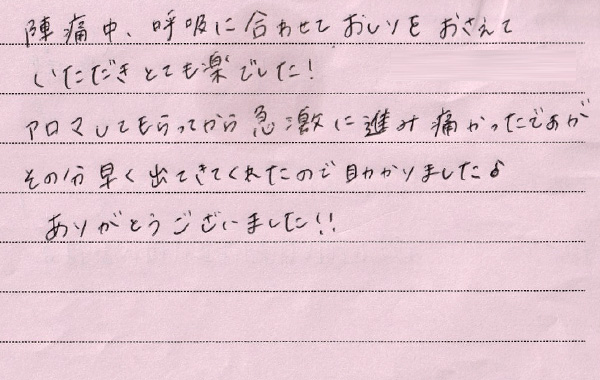 陣痛中、呼吸に合わせて おしりを おさえて
いただき とても楽でした!
アロマしてもらってから 急激に進み 痛かったですが
その分早く出てきてくれたので助かりました♪
ありがとうございました!!